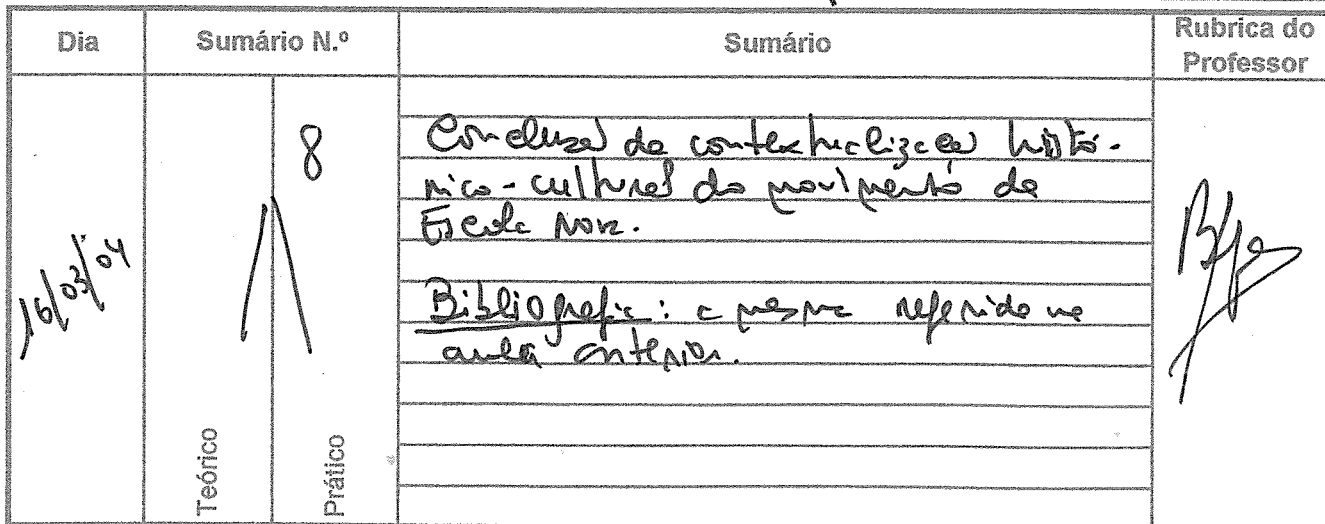 Dia Sumário N.º Sumário Rubrica do Professor
16/03/04
8
Conclusão da contextualização histó-
rico-cultural do movimento da
Escola Nova.
Bibliografia: a mesma referida na
aula anterior.
Teórico
Prático